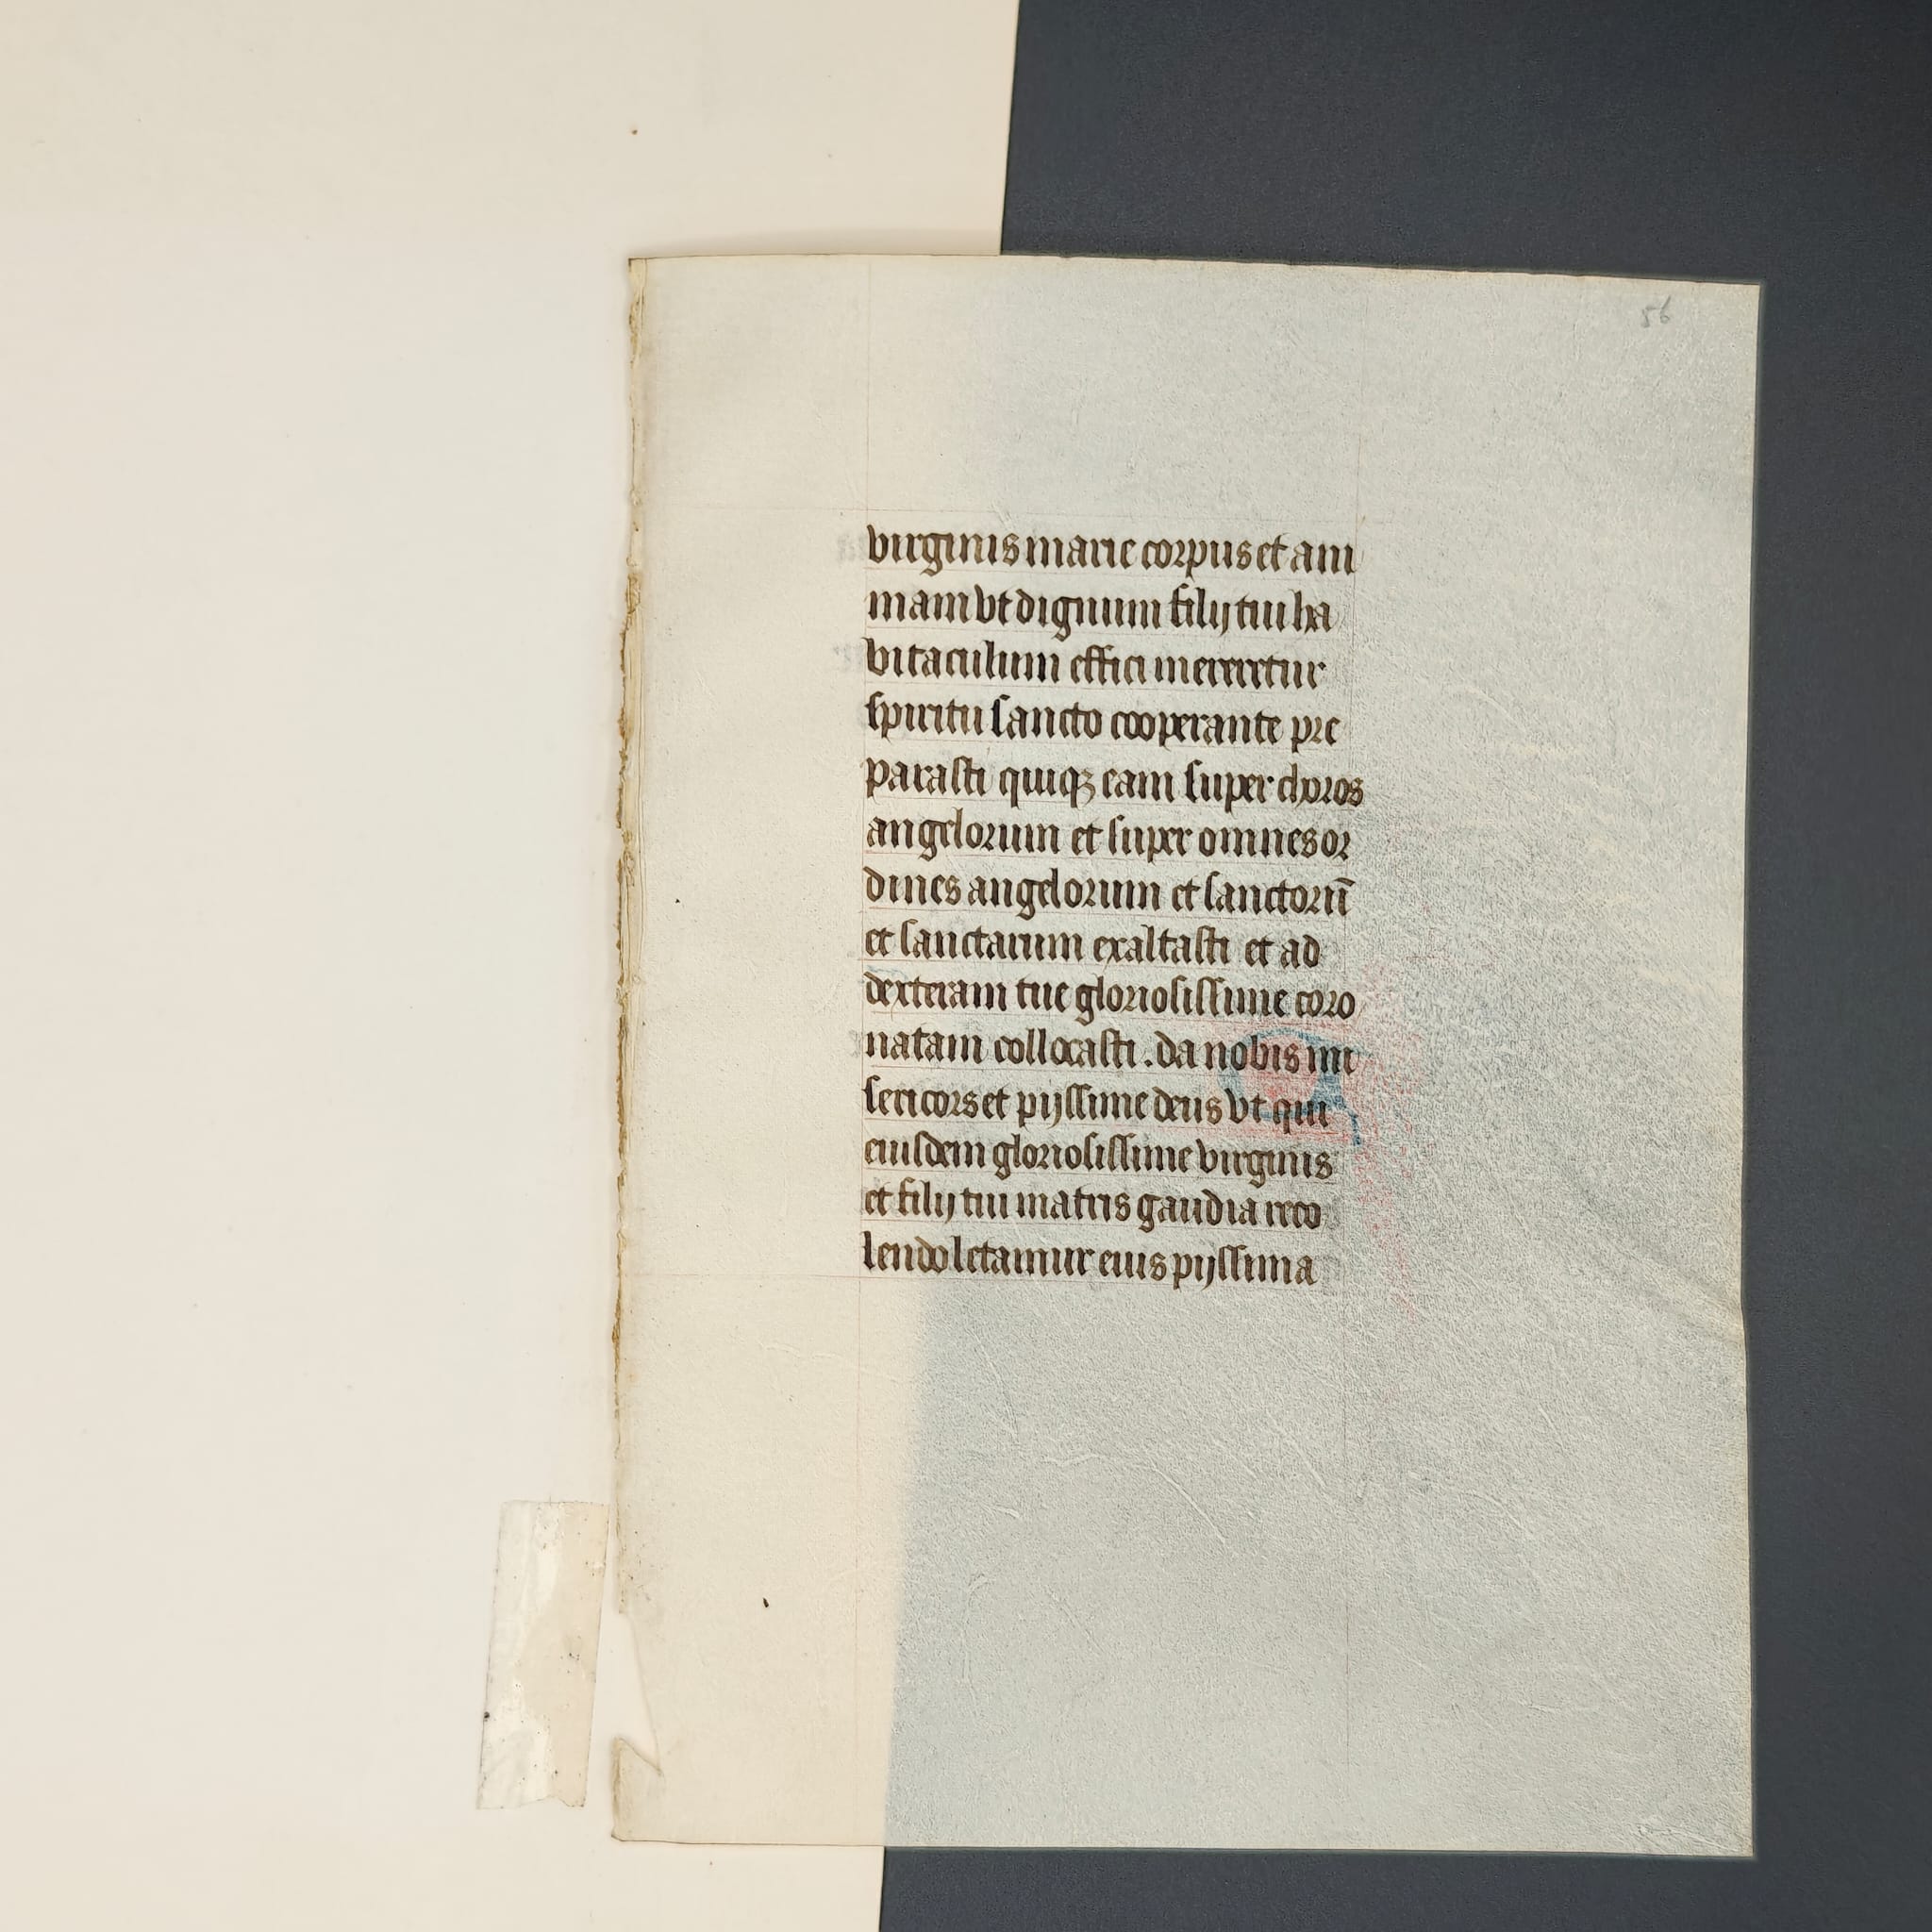 56
virginis marie corpus et ani
mam vt dignum filij tui ha
bitaculum effici mereretur
spiritu sancto cooperante pre
parasti quiqꝫ eam super choros
angelorum et super omnes or
dines angelorum et sanctorū
et sanctarum exaltasti et ad
dexteram tue gloriosissime coro
natam collocasti . da nobis mi
sericors et pijssime deus vt qui
eiusdem gloriosissime virginis
et filij tui matris gaudia reco
lendo letamur eius pijssima